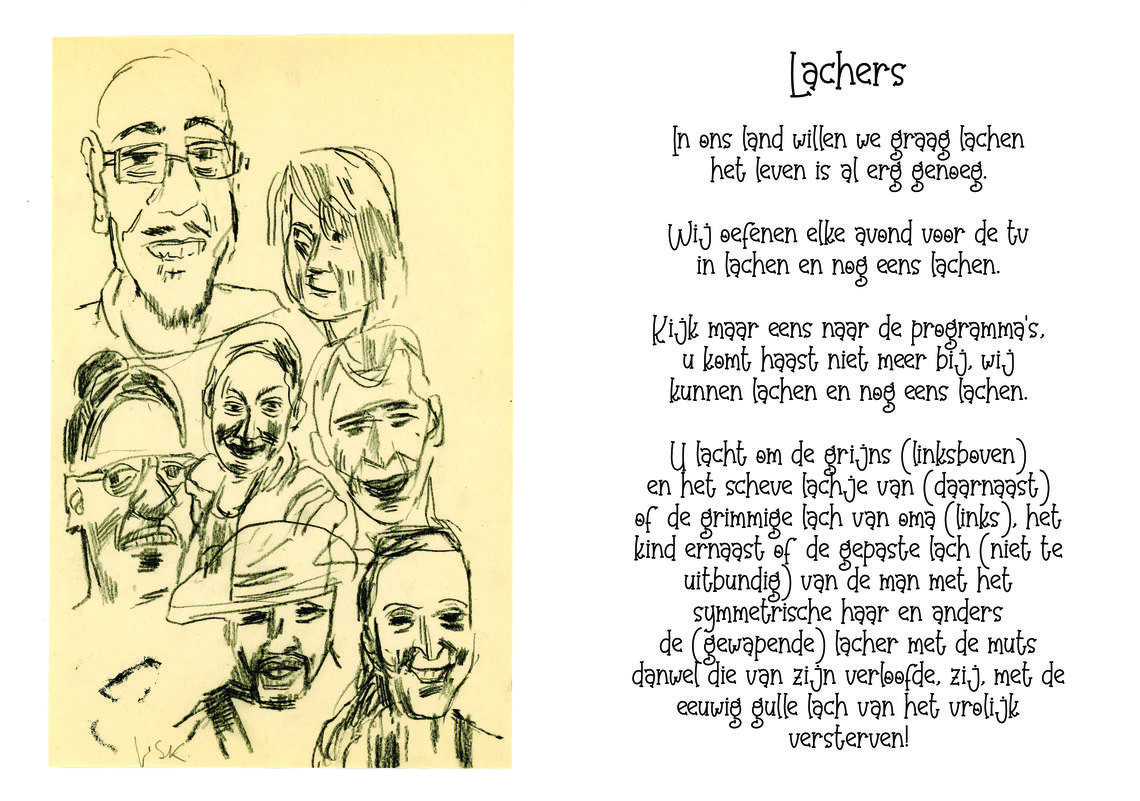 Lachers
In ons land willen we graag lachen
het leven is al erg genoeg.
Wij oefenen elke avond voor de tv
in lachen en nog eens lachen.
Kijk maar eens naar de programma's,
u komt haast niet meer bij, wij
kunnen lachen en nog eens lachen.
U lacht om de grijns (linksboven)
en het scheve lachje van (daarnaast)
of de grimmige lach van oma (links), het
kind ernaast of de gepaste lach (niet te
uitbundig) van de man met het
symmetrische haar en anders
de (gewapende) lacher met de muts
danwel die van zijn verloofde, zij, met de
eeuwig gulle lach van het vrolijk
versterven!